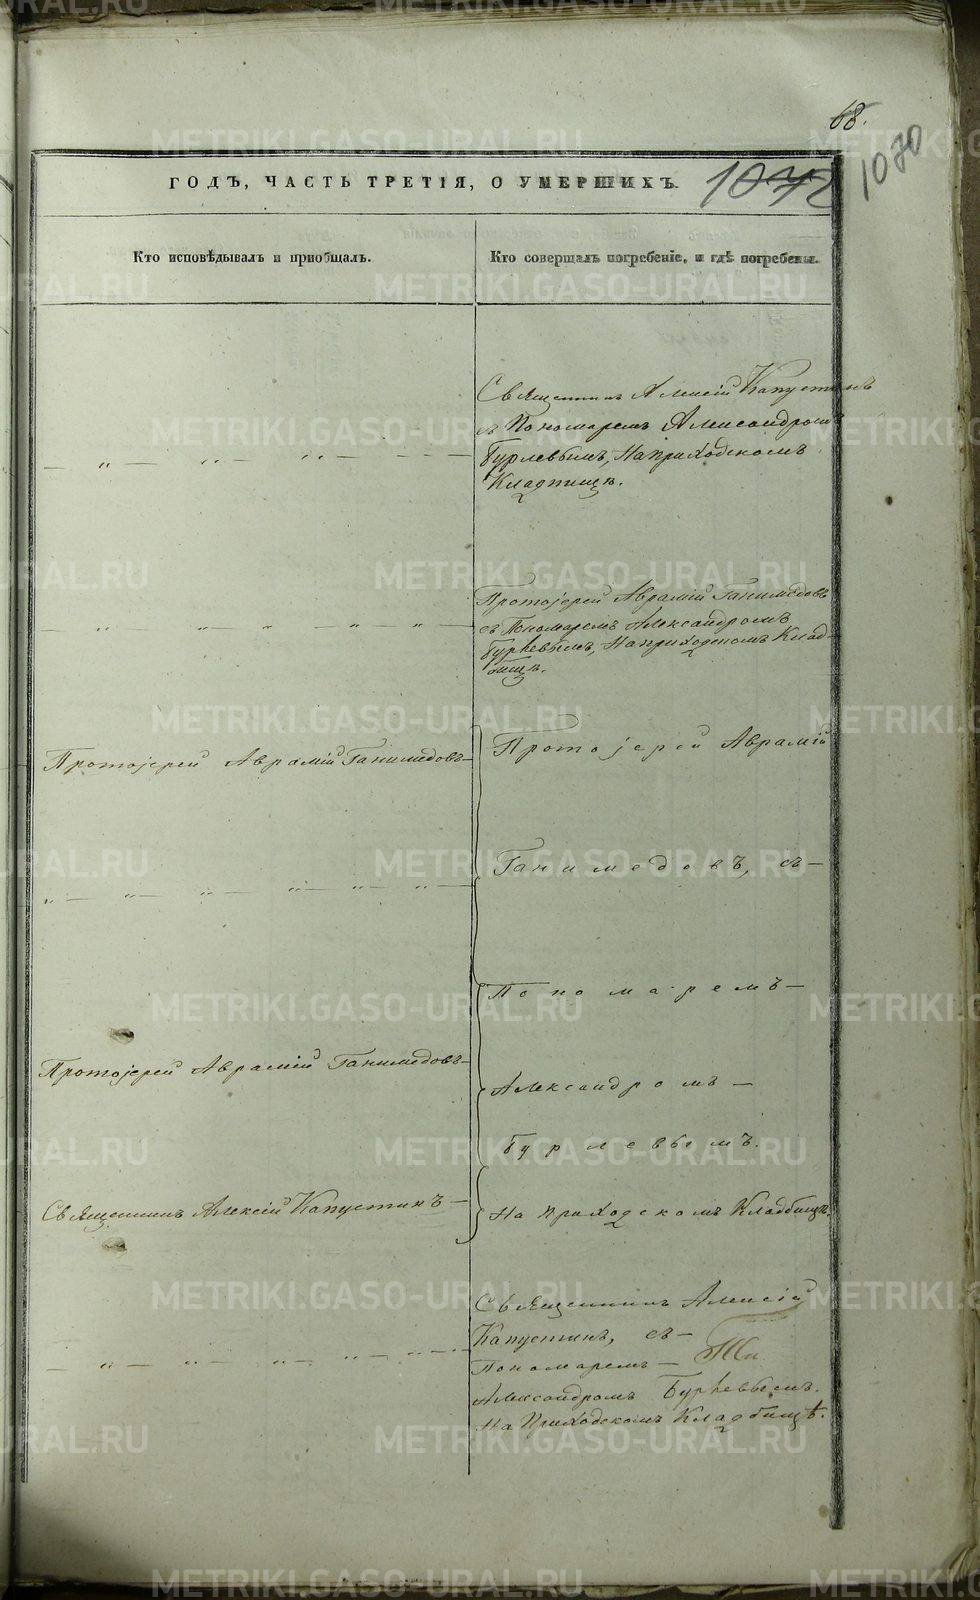 68.
1070
1072
ГОДЪ, ЧАСТЬ ТРЕТІЯ, О УМЕРШИХЪ.
Кто исповѣдывалъ и пріобщалъ.
Кто совершалъ погребеніе, и гдѣ погребены.
Священникъ Алексій Капустинъ
съ Пономаремъ Александромъ
Бурлевымъ, На приходскомъ
Кладпищѣ.
Протоjерей Аврамій Ганимедовъ
съ Пономаремъ Александромъ
На приходскомъ Клад-
бищѣ.
Протоjерей Аврамій Ганимедовъ
Протоjерей Аврамій
Ганимедовъ, съ
Пономаремъ
Протоjерей Аврамій Ганимедовъ
Александромъ
Бурлевымъ.
Священникъ Алексій Капустинъ
На Приходскомъ Кладбищѣ.
Священникъ Алексій
Капустинъ, съ
Пономаремъ
Александромъ
На Приходскомъ Кладбищѣ.
METRIKI.GASO-URAL.RU